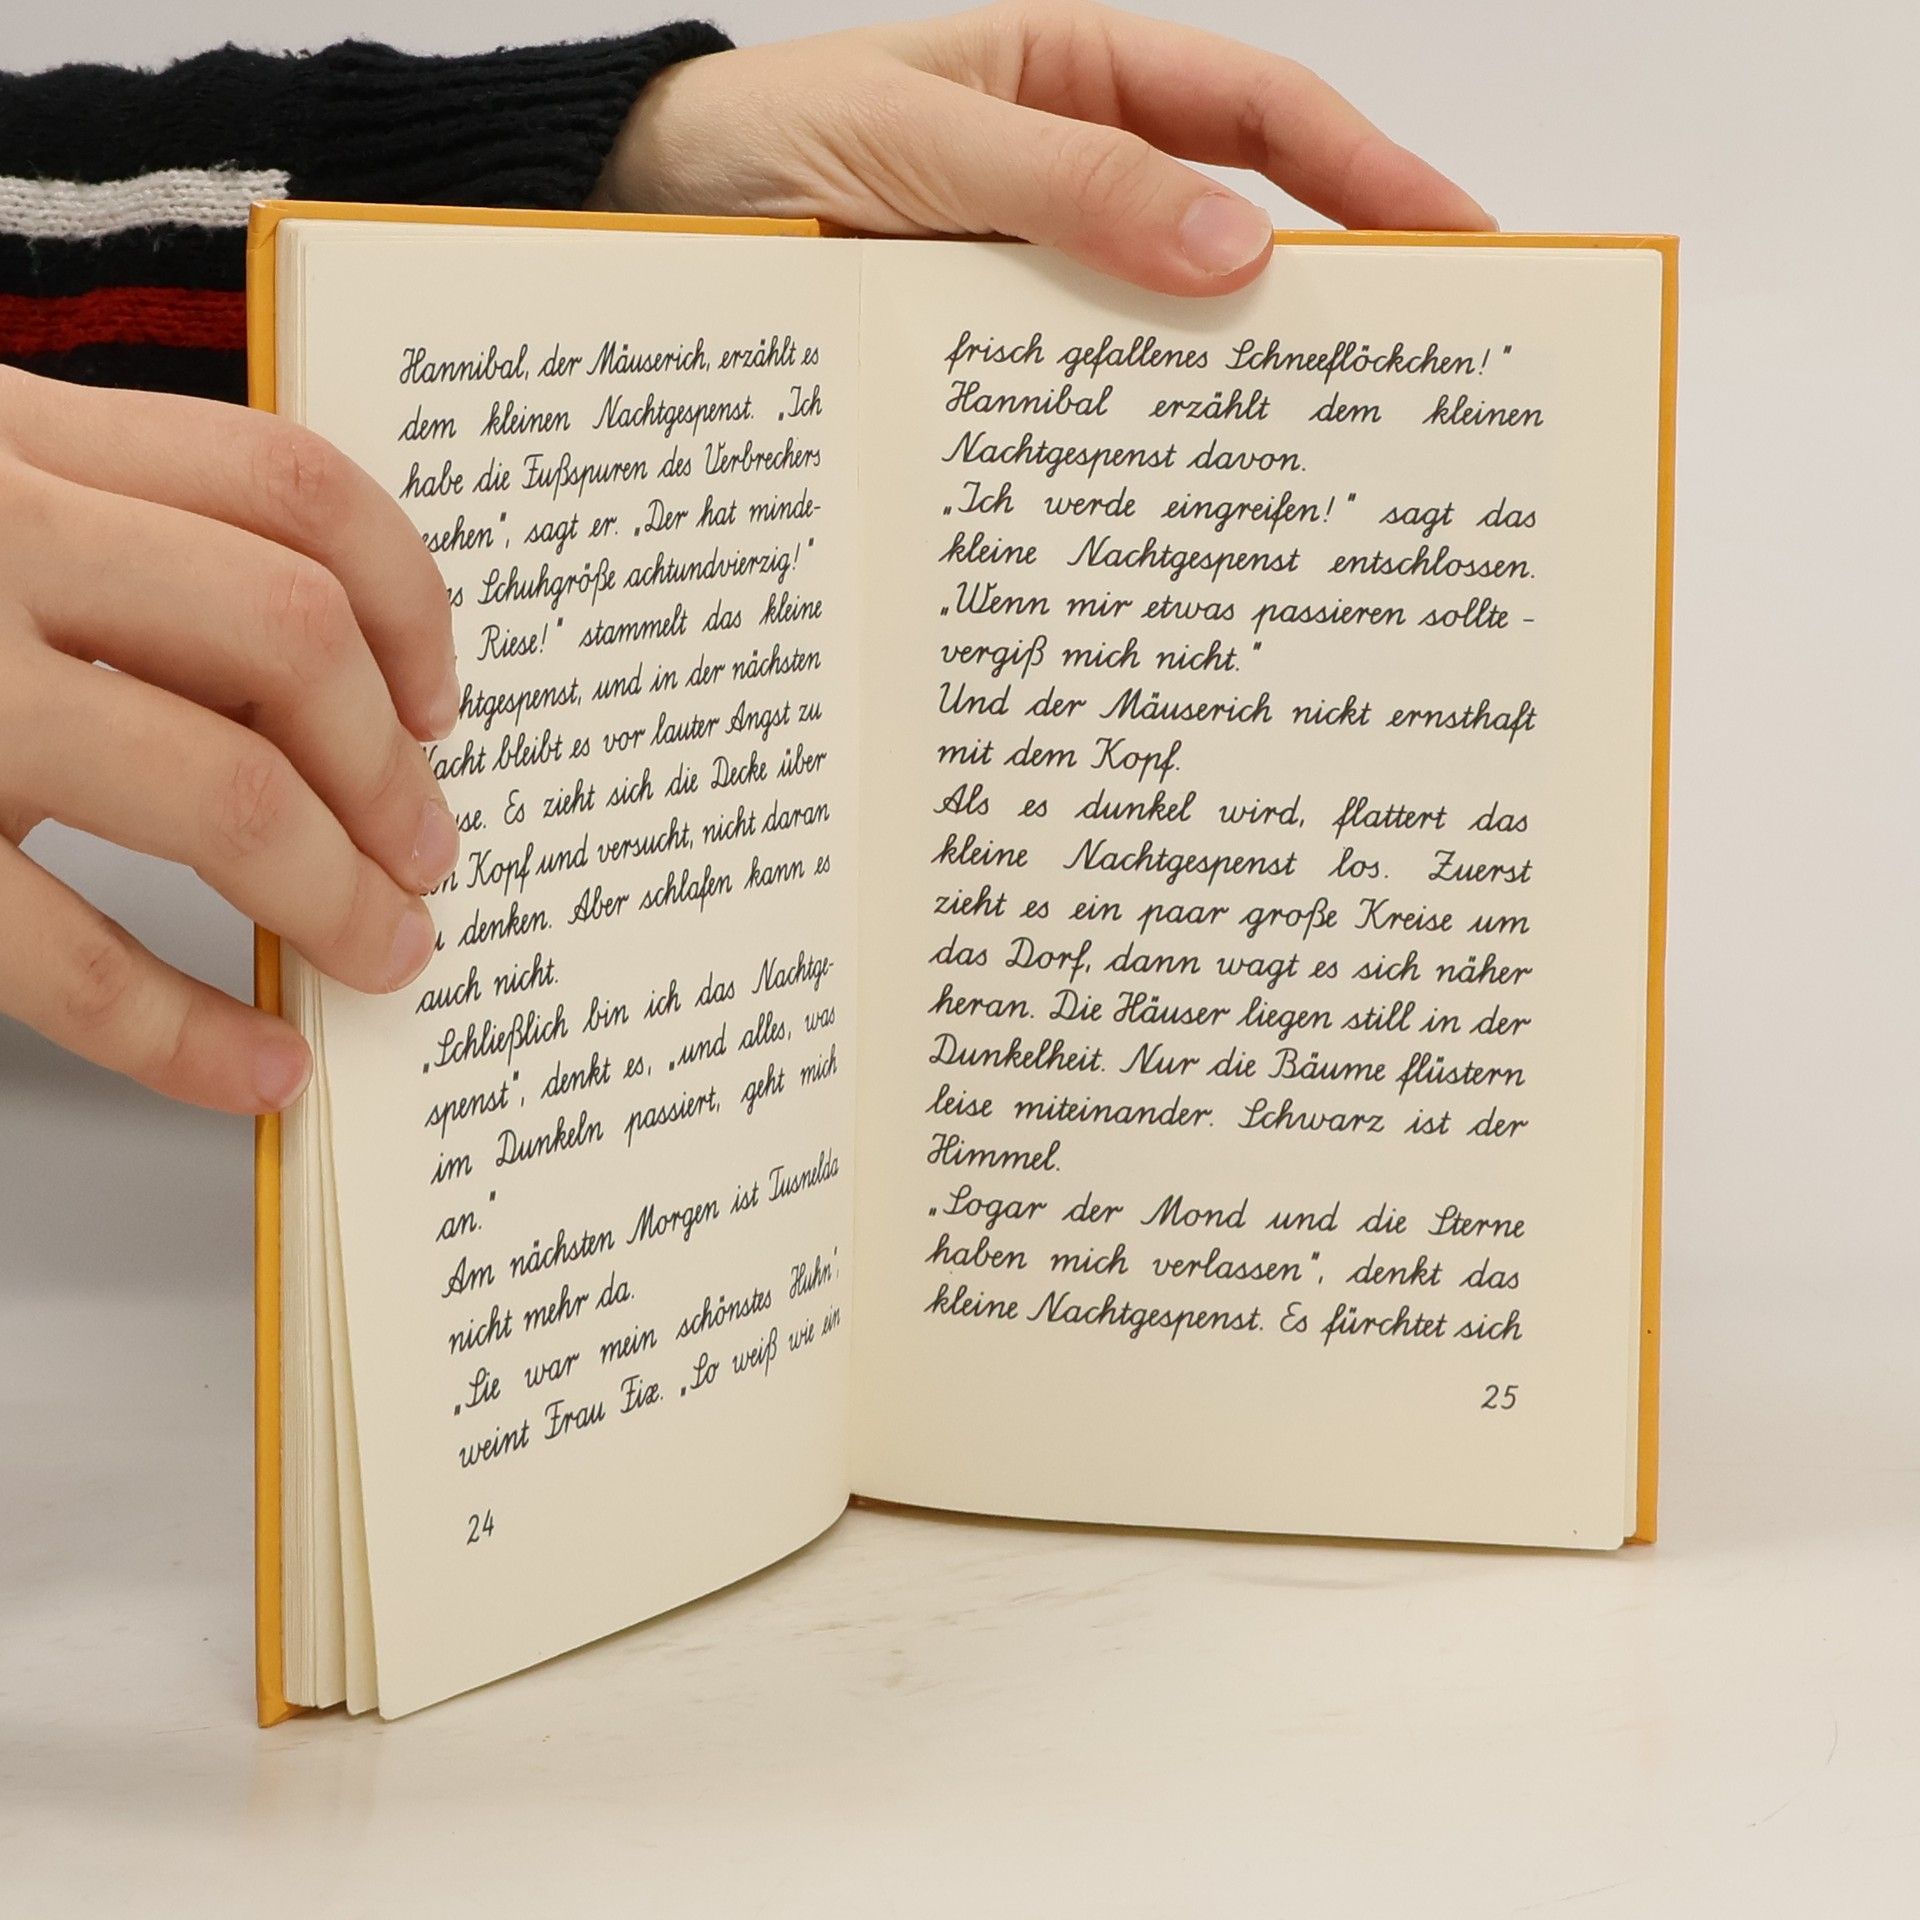 Hannibal, der Mäuserich, erzählt es
dem kleinen Nachtgespenst. „Ich
habe die Fußspuren des Verbrechers
sehen", sagt er. „Der hat minde-
Schuhgröße achtundvierzig!"
Riese!" stammelt das kleine
htgespenst, und in der nächsten
Nacht bleibt es vor lauter Angst zu
se. Es zieht sich die Decke über
Kopf und versucht, nicht daran
denken. Aber schlafen kann es
auch nicht.
„Schließlich bin ich das Nachtge-
spenst", denkt es, „und alles, was
im Dunkeln passiert, geht mich
an."
Am nächsten Morgen ist Tusnelda
nicht mehr da.
„Sie war mein schönstes Huhn",
weint Frau Fix. „So weiß wie ein
24
frisch gefallenes Schneeflöckchen!"
Hannibal erzählt dem kleinen
Nachtgespenst davon.
„Ich werde eingreifen!" sagt das
kleine Nachtgespenst entschlossen.
„Wenn mir etwas passieren sollte –
vergiß mich nicht."
Und der Mäuserich nickt ernsthaft
mit dem Kopf.
Als es dunkel wird, flattert das
kleine Nachtgespenst los. Zuerst
zieht es ein paar große Kreise um
das Dorf, dann wagt es sich näher
heran. Die Häuser liegen still in der
Dunkelheit. Nur die Bäume flüstern
leise miteinander. Schwarz ist der
Himmel.
„Sogar der Mond und die Sterne
haben mich verlassen", denkt das
kleine Nachtgespenst. Es fürchtet sich
25